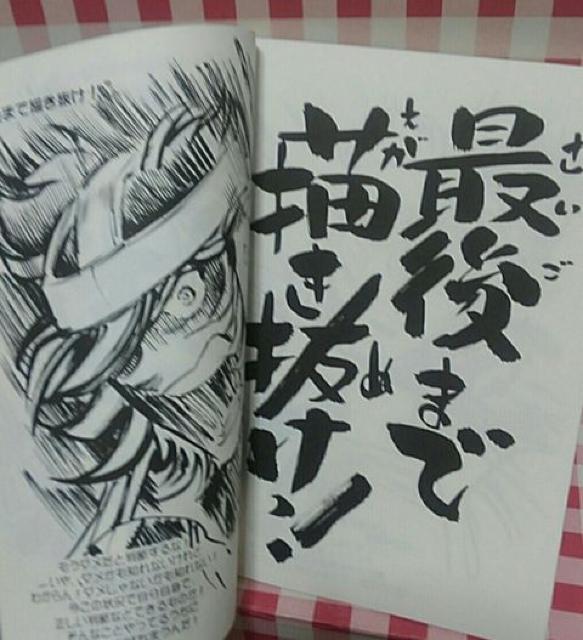 最後まで
描き抜け!
さいご
えが
ぬ
まで描き抜け!
もうダメだと判断するな!
─いや、ダメかも知れないけれど
わからん!ダメじゃないかも知れない!
今この状況で自分自身で、
正しい判断などできるものか!
そんなことやってるヒマに